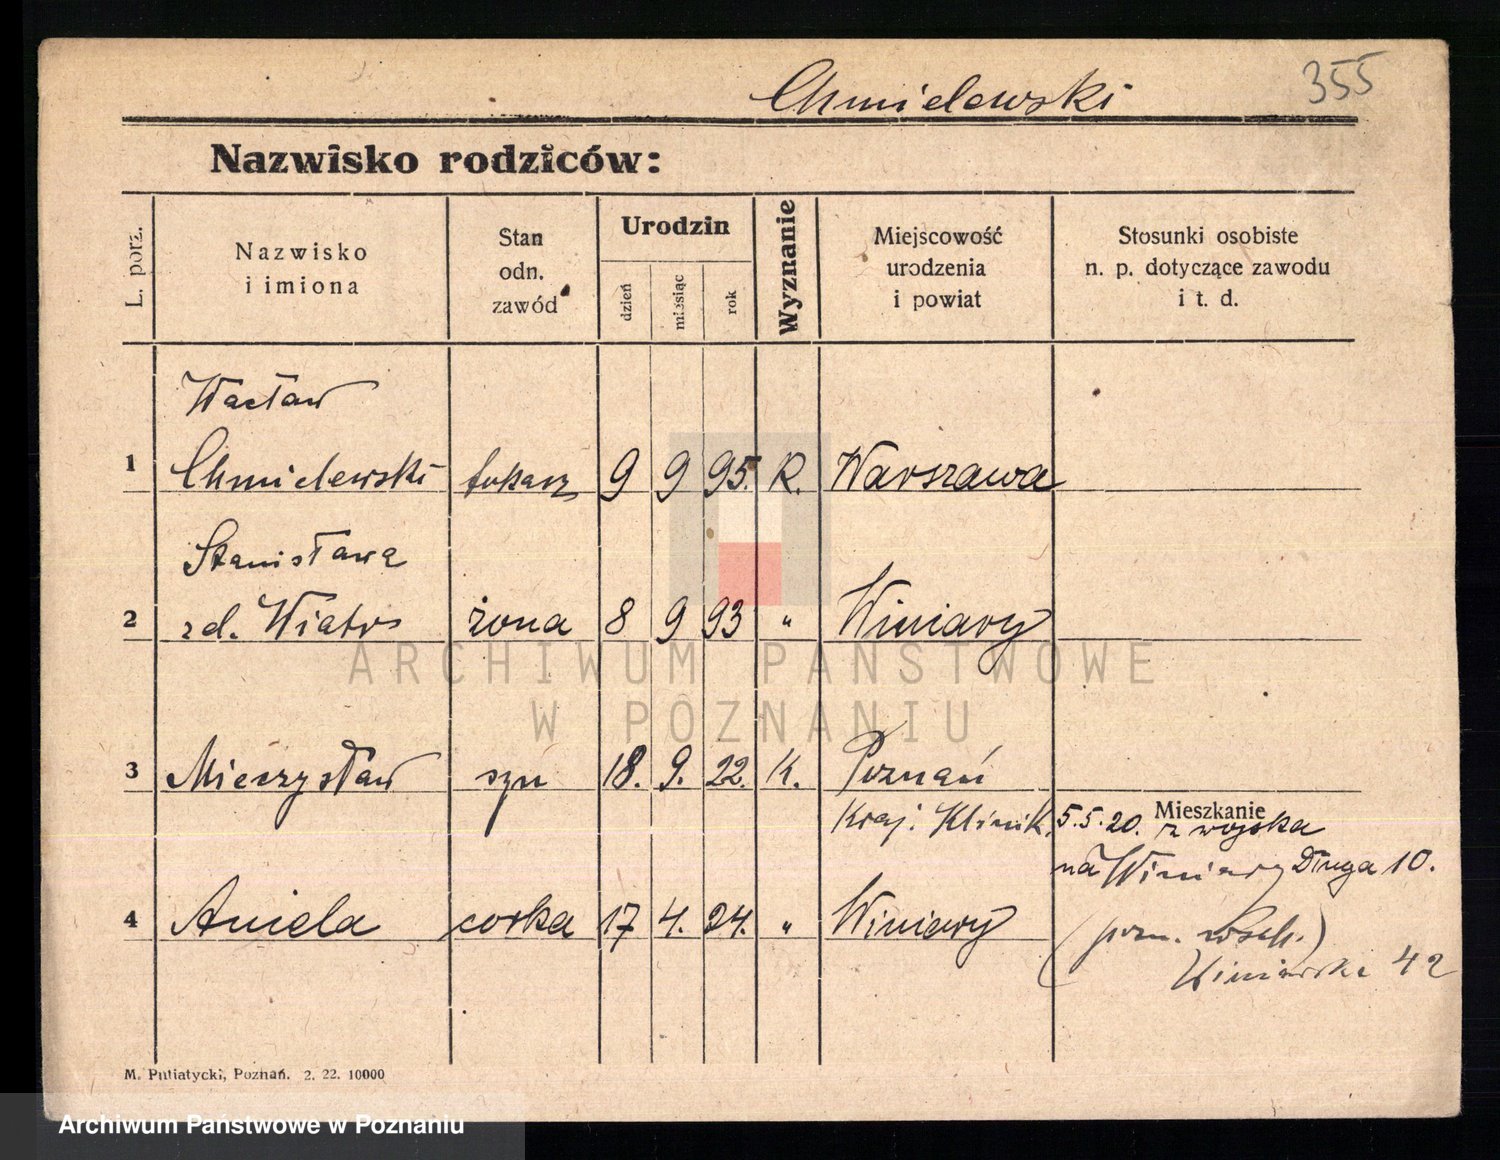 Chmielewski
355
Nazwisko rodziców:
L. porz.
Nazwisko
i imiona
Stan
odn.
zawód
Urodzin
dzień
miesiąc
rok
Wyznanie
Miejscowość
urodzenia
i powiat
Stosunki osobiste
n. p. dotyczące zawodu
i t. d.
Wacław
1 Chmielewski 9 9 95. R. Warszawa
Stanisława
2 zd. Wiatr żona 8 9 93 " Winiary
3 Mieczysław syn 18. 9. 22. K. Poznań
Kraj. Klinik.
Mieszkanie
5.5.20. z wojska
na Winiary Długa 10.
4 Aniela corka 17 4. 24. " Winiary
Winiarska 42
M. Putiatycki, Poznań. 2. 22. 10000
ARCHIWUM PAŃSTWOWE
W POZNANIU
Archiwum Państwowe w Poznaniu